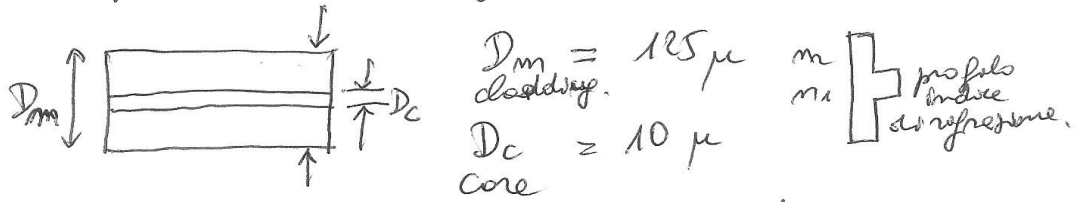 Dm
Dc
Dm = 125 μ
cladding.
Dc = 10 μ
core
n
n1
profilo
indice
di rifrazione.